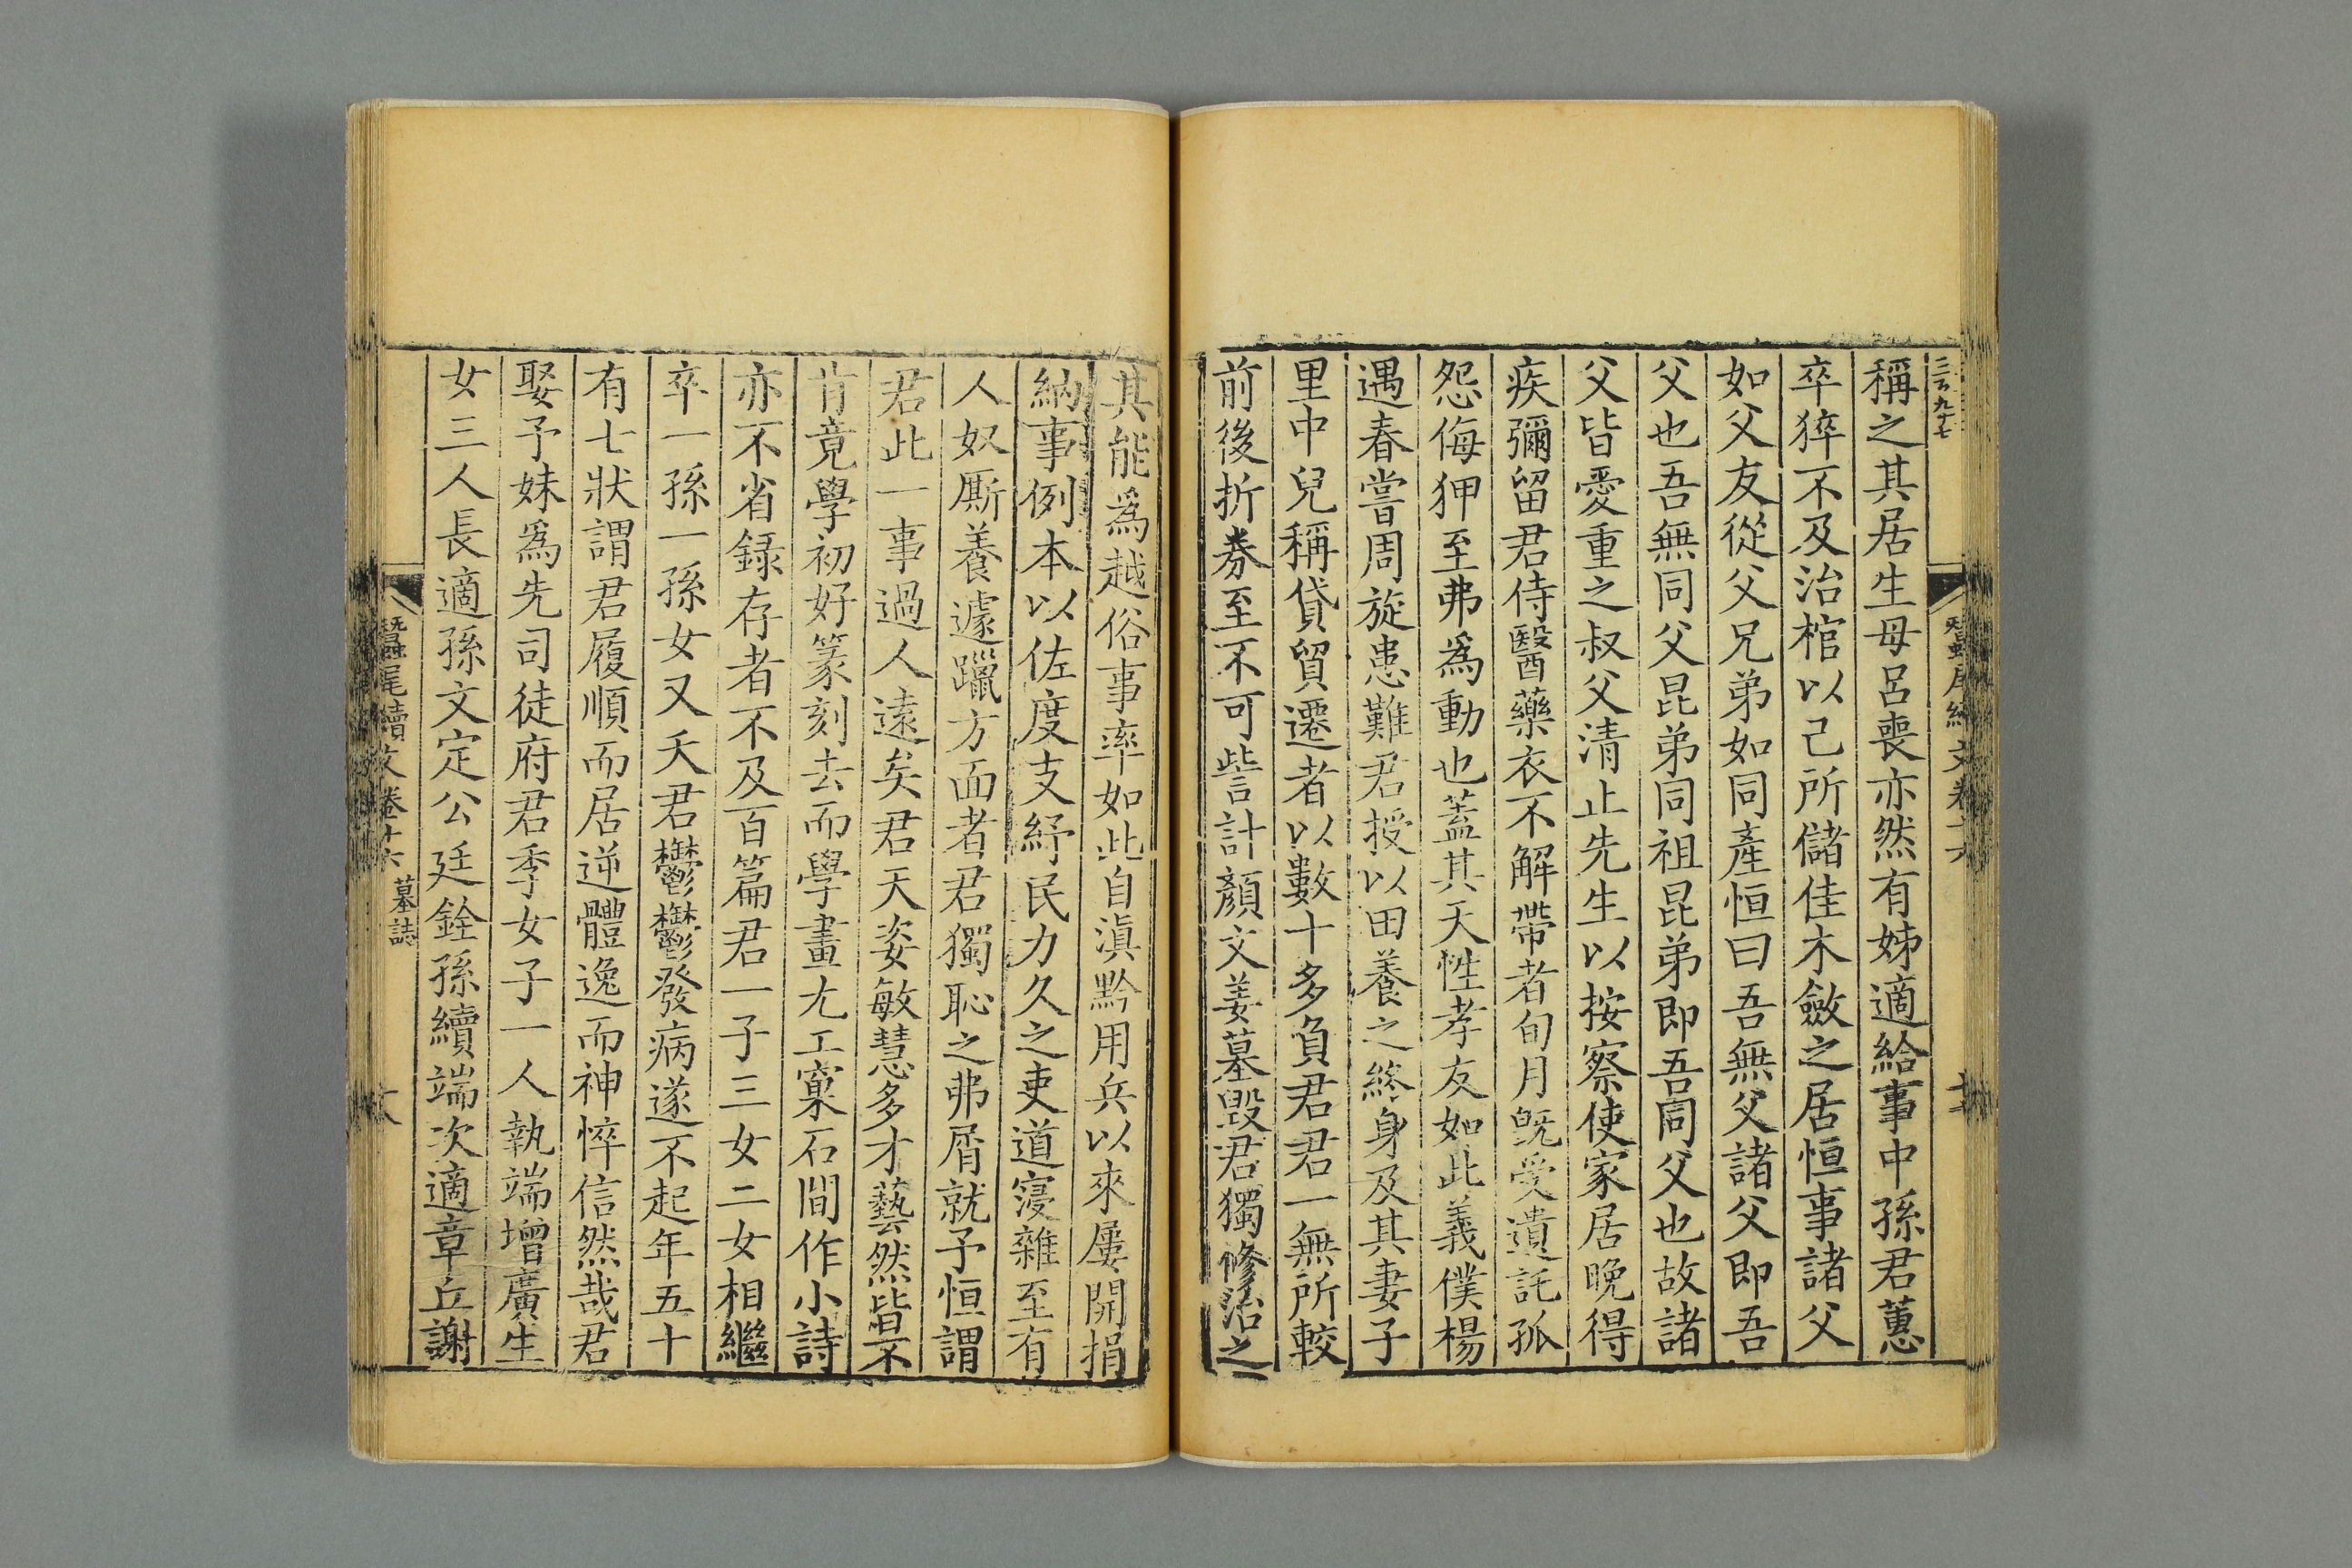 稱之其居生母呂喪亦然有姊適給事中孫君蕙
卒猝不及治棺以己所儲佳木斂之居恒事諸父
如父友從父兄弟如同產恒曰吾無父諸父即吾
父也吾無同父昆弟同祖昆弟即吾同父也故諸
父皆愛重之叔父清止先生以按察使家居晚得
疾彌留君侍醫藥衣不解帶者旬月旣受遺託孤
怨侮狎至弗為動也蓋其天性孝友如此義僕楊
遇春嘗周旋患難君授以田養之終身及其妻子
里中兒稱貸貿遷者以數十多負君君一無所較
前後折券至不可訾計顏文姜墓毀君獨修治之
其能為越俗事率如此自滇黔用兵以來屢開捐
納事例本以佐度支紓民力久之吏道寖雜至有
人奴廝養遽躐方面者君獨恥之弗屑就予恒謂
君此一事過人遠矣君天姿敏慧多才藝然皆不
肯竟學初好篆刻去而學畫尤工窠石間作小詩
亦不省録存者不及百篇君一子三女二女相繼
卒一孫一孫女又夭君鬱鬱發病遂不起年五十
有七狀謂君履順而居逆體逸而神悴信然哉君
娶予妹為先司徒府君季女子一人執端增廣生
女三人長適孫文定公廷銓孫續端次適章丘謝
蠶尾續文卷十六 墓誌